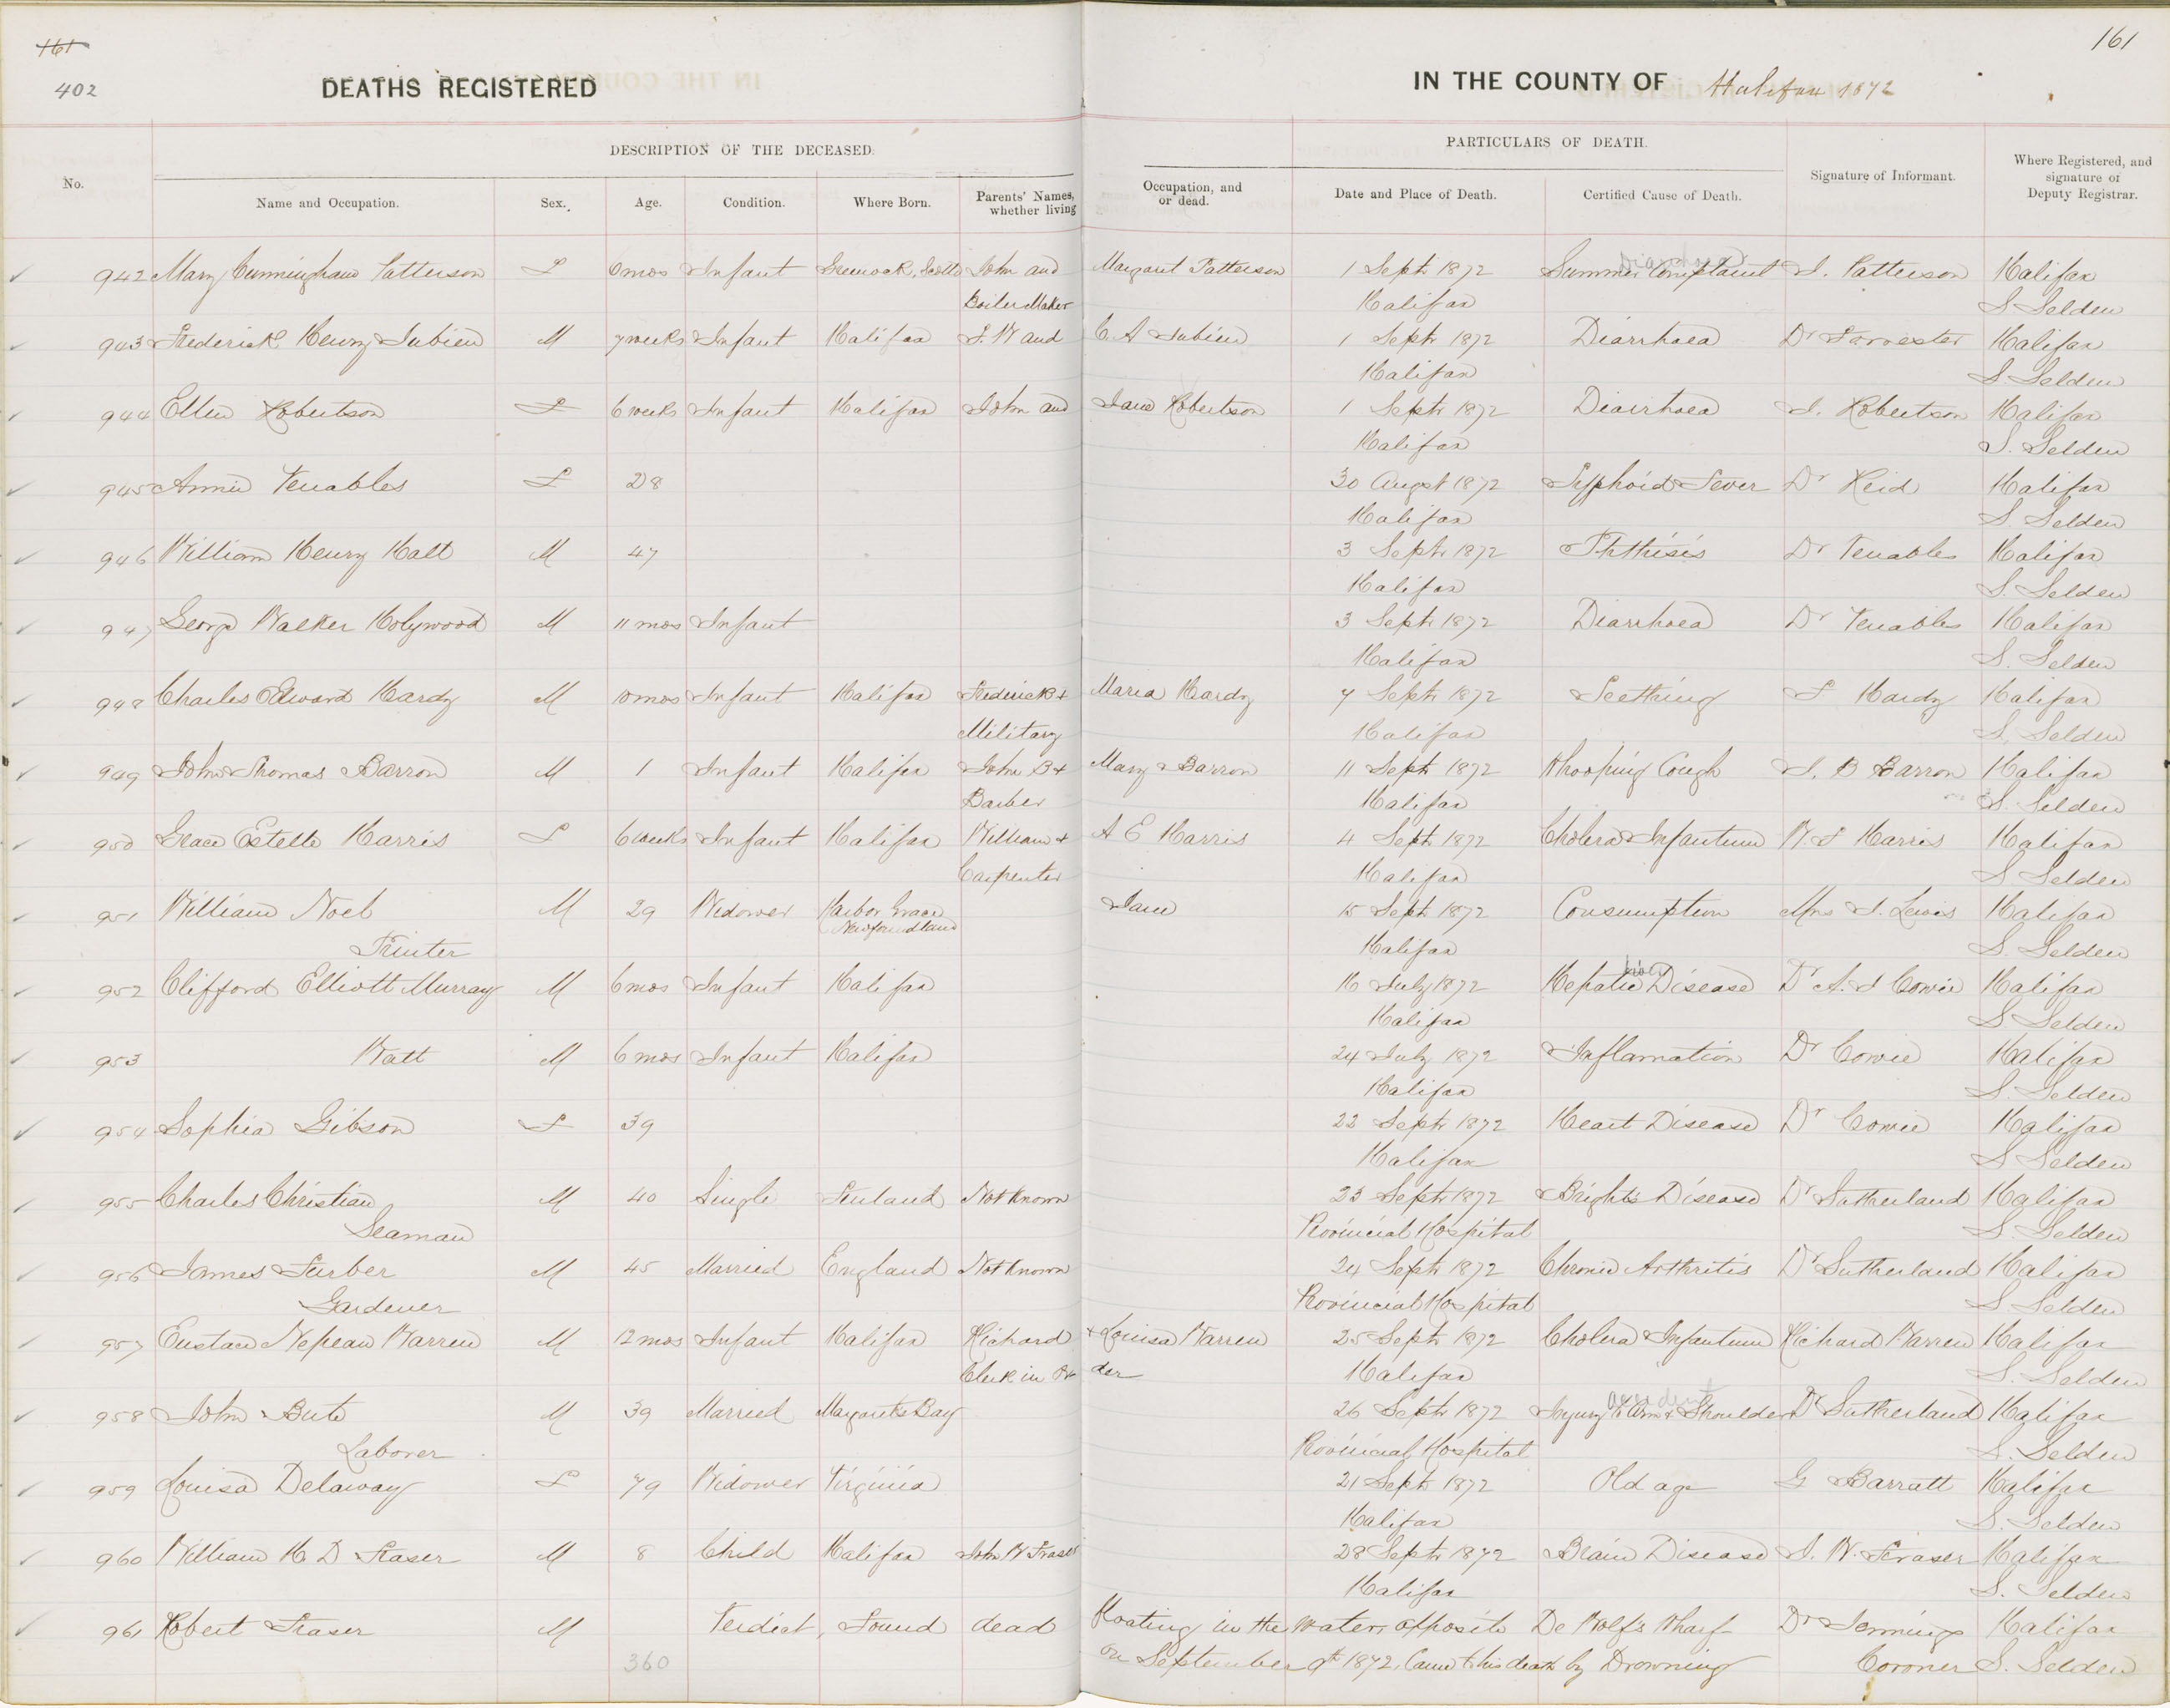 161
402
DEATHS REGISTERED
IN THE COUNTY OF Halifax 1872
161
No.
DESCRIPTION OF THE DECEASED.
PARTICULARS OF DEATH.
Name and Occupation.
Sex.
Age.
Condition.
Where Born.
Parents' Names, whether living
Occupation, and or dead.
Date and Place of Death.
Certified Cause of Death.
Signature of Informant.
Where Registered, and signature of Deputy Registrar.
942 Mary Cunningham Patterson F 6 mos Infant Greenock, Scotld John and Margaret Patterson 1 Sept 1872 Summer Complaint J. Patterson Halifax
Diarrhoea
Boiler Maker Halifax S Selden
943 Frederick Henry Jubien M 7 weeks Infant Halifax J. W and C. A Jubien 1 Sept 1872 Diarrhoea Dr Forrester Halifax
Halifax S Selden
944 Ellen Robertson F 6 weeks Infant Halifax John and Jane Robertson 1 Sept 1872 Diarrhoea J. Robertson Halifax
Halifax S. Selden
945 Annie Venables F 28 30 Augst 1872 Typhoid Fever Dr Reid Halifax
Halifax S. Selden
946 William Henry Hall M 47 3 Sept 1872 Phthisis Dr Venables Halifax
Halifax S. Selden
947 George Walker Holywood M 11 mos Infant 3 Sept 1872 Diarrhoea Dr Venables Halifax
Halifax S. Selden
948 Charles Edward Hardy M 10 mos Infant Halifax Frederick + Maria Hardy 7 Sept 1872 Teething F Hardy Halifax
Military Halifax S. Selden
949 John Thomas Barron M 1 Infant Halifax John B + Mary Barron 11 Sept 1872 Whooping Cough J. B Barron Halifax
Barber Halifax S. Selden
950 Grace Estelle Harris F 6 weeks Infant Halifax William + A E Harris 4 Sept 1872 Cholera Infantum W. F Harris Halifax
Carpenter Halifax S Selden
951 William Noel M 29 Widower Harbor Grace Jane 15 Sept 1872 Consumption Mrs J. Lewis Halifax
Newfoundland
Printer Halifax S. Selden
952 Clifford Elliott Murray M 6 mos Infant Halifax 16 July 1872 Hepatic Disease Dr A. J Cowie Halifax
liver
Halifax S Selden
953 Watt M 6 mos Infant Halifax 24 July 1872 Inflamation Dr Cowie Halifax
Halifax S. Selden
954 Sophia Gibson F 39 22 Sept 1872 Heart Disease Dr Cowie Halifax
Halifax S Selden
955 Charles Christian M 40 Single Finland Not Known 23 Sept 1872 Brights Disease Dr Sutherland Halifax
Seaman Provincial Hospital S. Selden
956 James Furber M 45 Married England Not Known 24 Sept 1872 Chronic Arthritis Dr Sutherland Halifax
Gardener Provincial Hospital S Selden
957 Eustace Nepean Warren M 12 mos Infant Halifax Richard + Louisa Warren 25 Sept 1872 Cholera Infantum Richard Warren Halifax
Clerk in Or der Halifax S. Selden
958 John Bute M 39 Married Margarets Bay 26 Sept 1872 Injury to Arm & Shoulder Dr Sutherland Halifax
accident
Laborer Provincial Hospital S. Selden
959 Louisa Delaway F 79 Widower Virginia 21 Sept 1872 Old age G Barratt Halifax
Halifax S. Selden
960 William H D Fraser M 8 Child Halifax John W Fraser 28 Sept 1872 Brain Disease J. W. Fraser Halifax
Halifax S. Selden
961 Robert Fraser M Verdict, Found dead floating in the Water, opposite De Wolf's Wharf Dr Jennings Halifax
360 on September 9th 1872, Came to his death by Drowning Coroner S. Selden